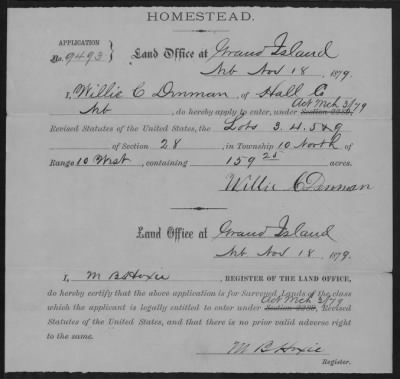 HOMESTEAD.
APPLICATION
No. 9493
Land Office at Grand Island
Neb Nov 18, 1879.
I, Willie C Denman, of Hall Co
Neb, do hereby apply to enter, under Section 2289, Act Mch 3/79
Revised Statutes of the United States, the Lots 3. 4. 5 & 9
of Section 28, in Township 10 North of
Range 10 West, containing 159 25 acres.
Willie C Denman
Land Office at Grand Island
Neb Nov 18, 1879.
I, M B Hoxie, REGISTER OF THE LAND OFFICE,
do hereby certify that the above application is for Surveyed Lands of the class
which the applicant is legally entitled to enter under Section 2289, Act Mch 3/79 Revised
Statutes of the United States, and that there is no prior valid adverse right
to the same.
M B Hoxie
Register.